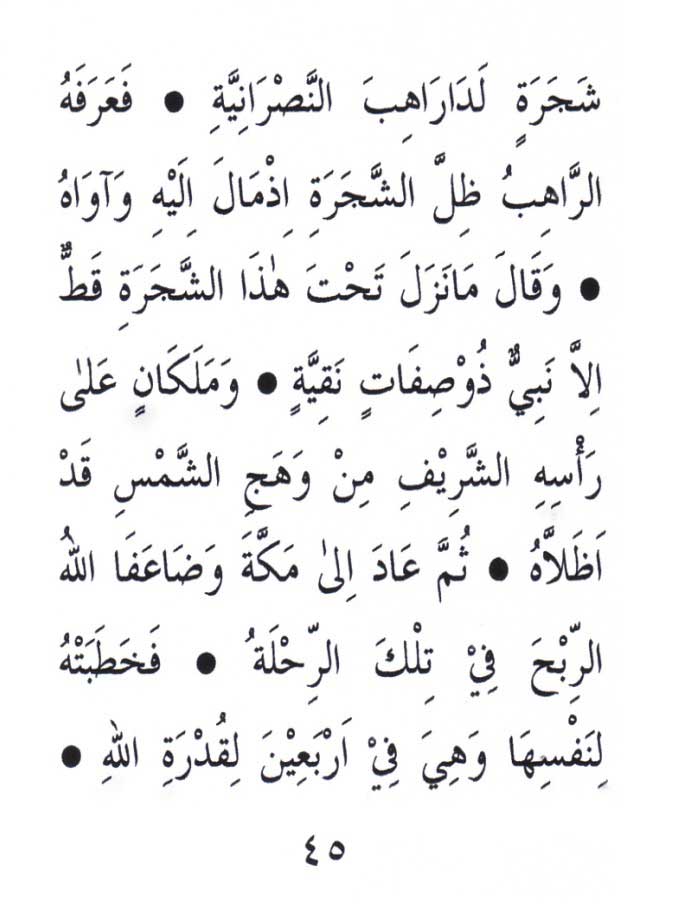 شَجَرَةٍ لَدَارَاهِبَ النَّصْرَانِيَّةِ ● فَعَرَفَهُ
الرَّاهِبُ ظِلَّ الشَّجَرَةِ اِذْمَالَ اِلَيْهِ وَآوَاهُ
● وَقَالَ مَانَزَلَ تَحْتَ هٰذَا الشَّجَرَةِ قَطٌّ
اِلاَّ نَبِيٌّ ذُوْصِفَاتٍ نَقِيَّةٍ ● وَمَلَكَانٍ عَلىٰ
رَأْسِهِ الشَّرِيْفِ مِنْ وَهَجِ الشَّمْسِ قَدْ
اَظَلاَّهُ ● ثُمَّ عَادَ اِلىٰ مَكَّةَ وَضَاعَفَا اللهُ
الرِّبْحَ فِيْ تِلْكَ الرِّحْلَةُ ● فَخَطَبَتْهُ
لِنَفْسِهَا وَهِيَ فِيْ اَرْبَعِيْنَ لِقُدْرَةِ اللهِ ●
٤٥